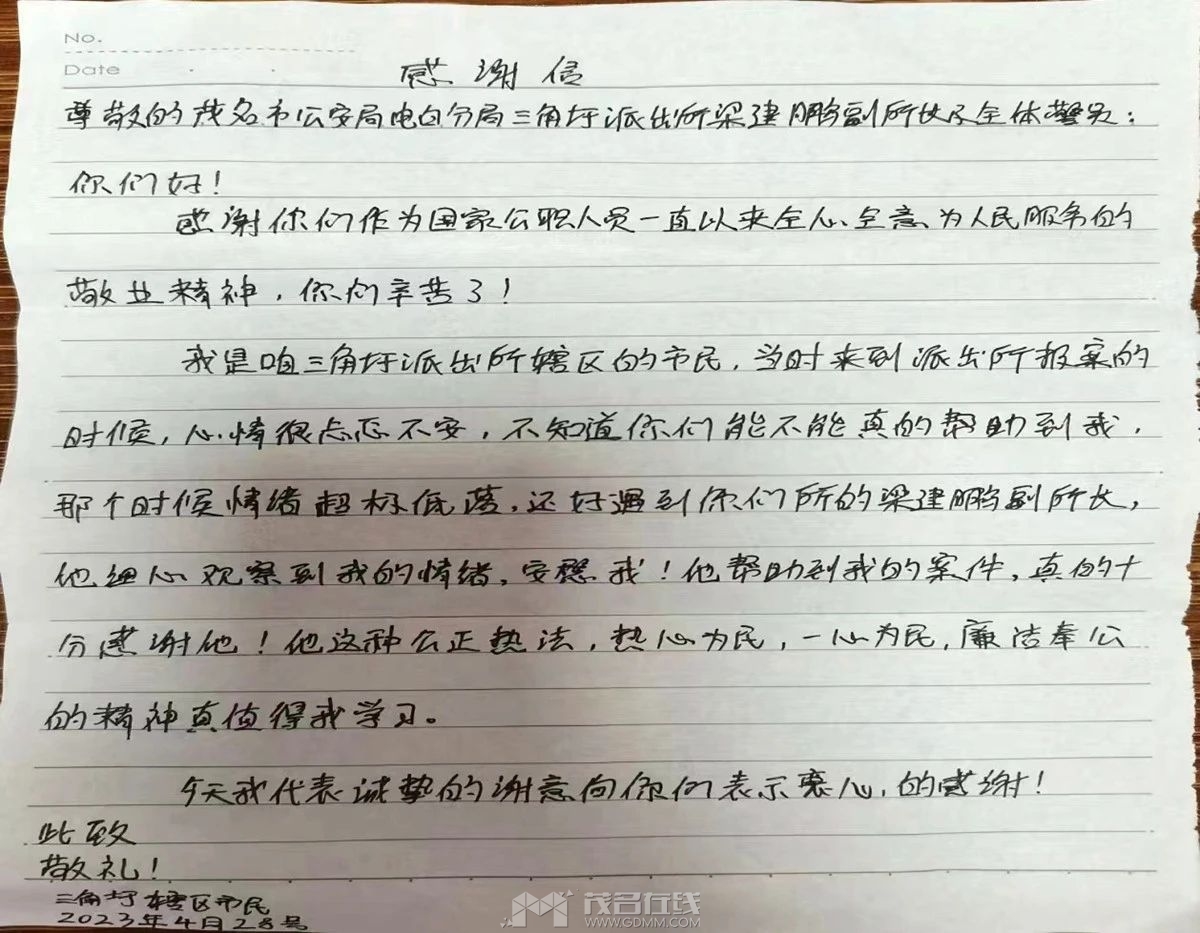 No.
Date
感谢信
尊敬的茂名市公安局电白分局三角圩派出所梁建鹏副所长及全体警员：
你们好！
感谢你们作为国家公职人员一直以来全心全意为人民服务的
敬业精神，你们辛苦了！
我是咱三角圩派出所辖区的市民，当时来到派出所报案的
时候，心情很忐忑不安，不知道你们能不能真的帮助到我，
那个时候情绪超标低落，还好遇到你们所的梁建鹏副所长，
他细心观察到我的情绪，安慰我！他帮助到我的案件，真的十
分感谢他！他这种公正热法，热心为民，一心为民，廉洁奉公
的精神真值得我学习。
今天我代表诚挚的谢意向你们表示衷心的感谢！
此致
敬礼！
三角圩辖区市民
2023年4月28号
茂名在线
WWW.GDMM.COM